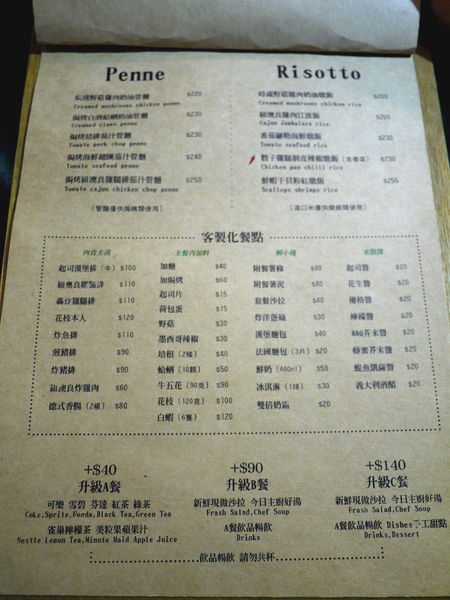 Penne
焗烤野菇雞肉奶油管麵 $220
Creamed mushrooms chicken penne
焗烤白酒蛤蜊奶油管麵 $230
Creamed clams penne
焗烤豬排茄汁管麵 $230
Tomato pork chop penne
焗烤海鮮總匯茄汁管麵 $240
Tomato seafood penne
焗烤紐澳良雞腿排茄汁管麵 $250
Tomato cajun chicken chop penne
(管麵僅供焗烤類使用)
Risotto
時蔬野菇雞肉奶油燉飯 $200
Creamed mushrooms chicken rice
紐澳良雞肉江波飯 $200
Cajun Jambalara rice
番茄羅勒海鮮燉飯 $230
Tomato seafood rice
骰子雞腿剝皮辣椒燉飯 $230
Chicken pam chilli rice
鮮蝦干貝粉紅燉飯 $250
Scallops shrimps rice
客製化餐點
肉食主義
起司漢堡排 (牛) $100
紐奧良雞腿排 $110
轟炸雞腿排 $110
花枝本人 $120
炸魚排 $110
煎豬排 $90
炸豬排 $90
紐澳良炸雞肉 $60
德式香腸 (2根) $80
主餐再加料
加麵 $40
加焗烤 $60
起司片 $15
荷包蛋 $15
野菇 $30
墨西哥辣椒 $30
培根 (2條) $40
蛤蜊 (10顆) $50
牛五花 (90克) $90
花枝 (120克) $100
白蝦 (6隻) $120
解小饞
附餐薯條 $40
附餐薯泥 $40
套餐沙拉 $40
炸洋蔥絲 $30
漢堡麵包 $40
法國麵包 (3片) $20
鮮奶 (400ml) $50
冰淇淋 (1球) $30
雙倍奶霜 $20
來點醬
起司醬 $20
花生醬 $20
優格醬 $20
檸檬醬 $20
BBQ芥末醬 $20
蜂蜜芥末醬 $20
鯷魚凱薩醬 $20
義大利酒醋 $20
+$40
升級A餐
可樂 雪碧 芬達 紅茶 綠茶
Coke,Sprite,Fonda,Black Tea,Green Tea
雀巢檸檬茶 美粒果蘋果汁
Nestle Lemon Tea,Minute Maid Apple Juice
+$90
升級B餐
新鮮現做沙拉 今日主廚好湯
Frash Salad,Chef Soup
A餐飲品暢飲
Drinks
+$140
升級C餐
新鮮現做沙拉 今日主廚好湯
Frash Salad,Chef Soup
A餐暢飲 Dishes手工甜點
Drinks,Dessert
飲品暢飲 請勿共杯